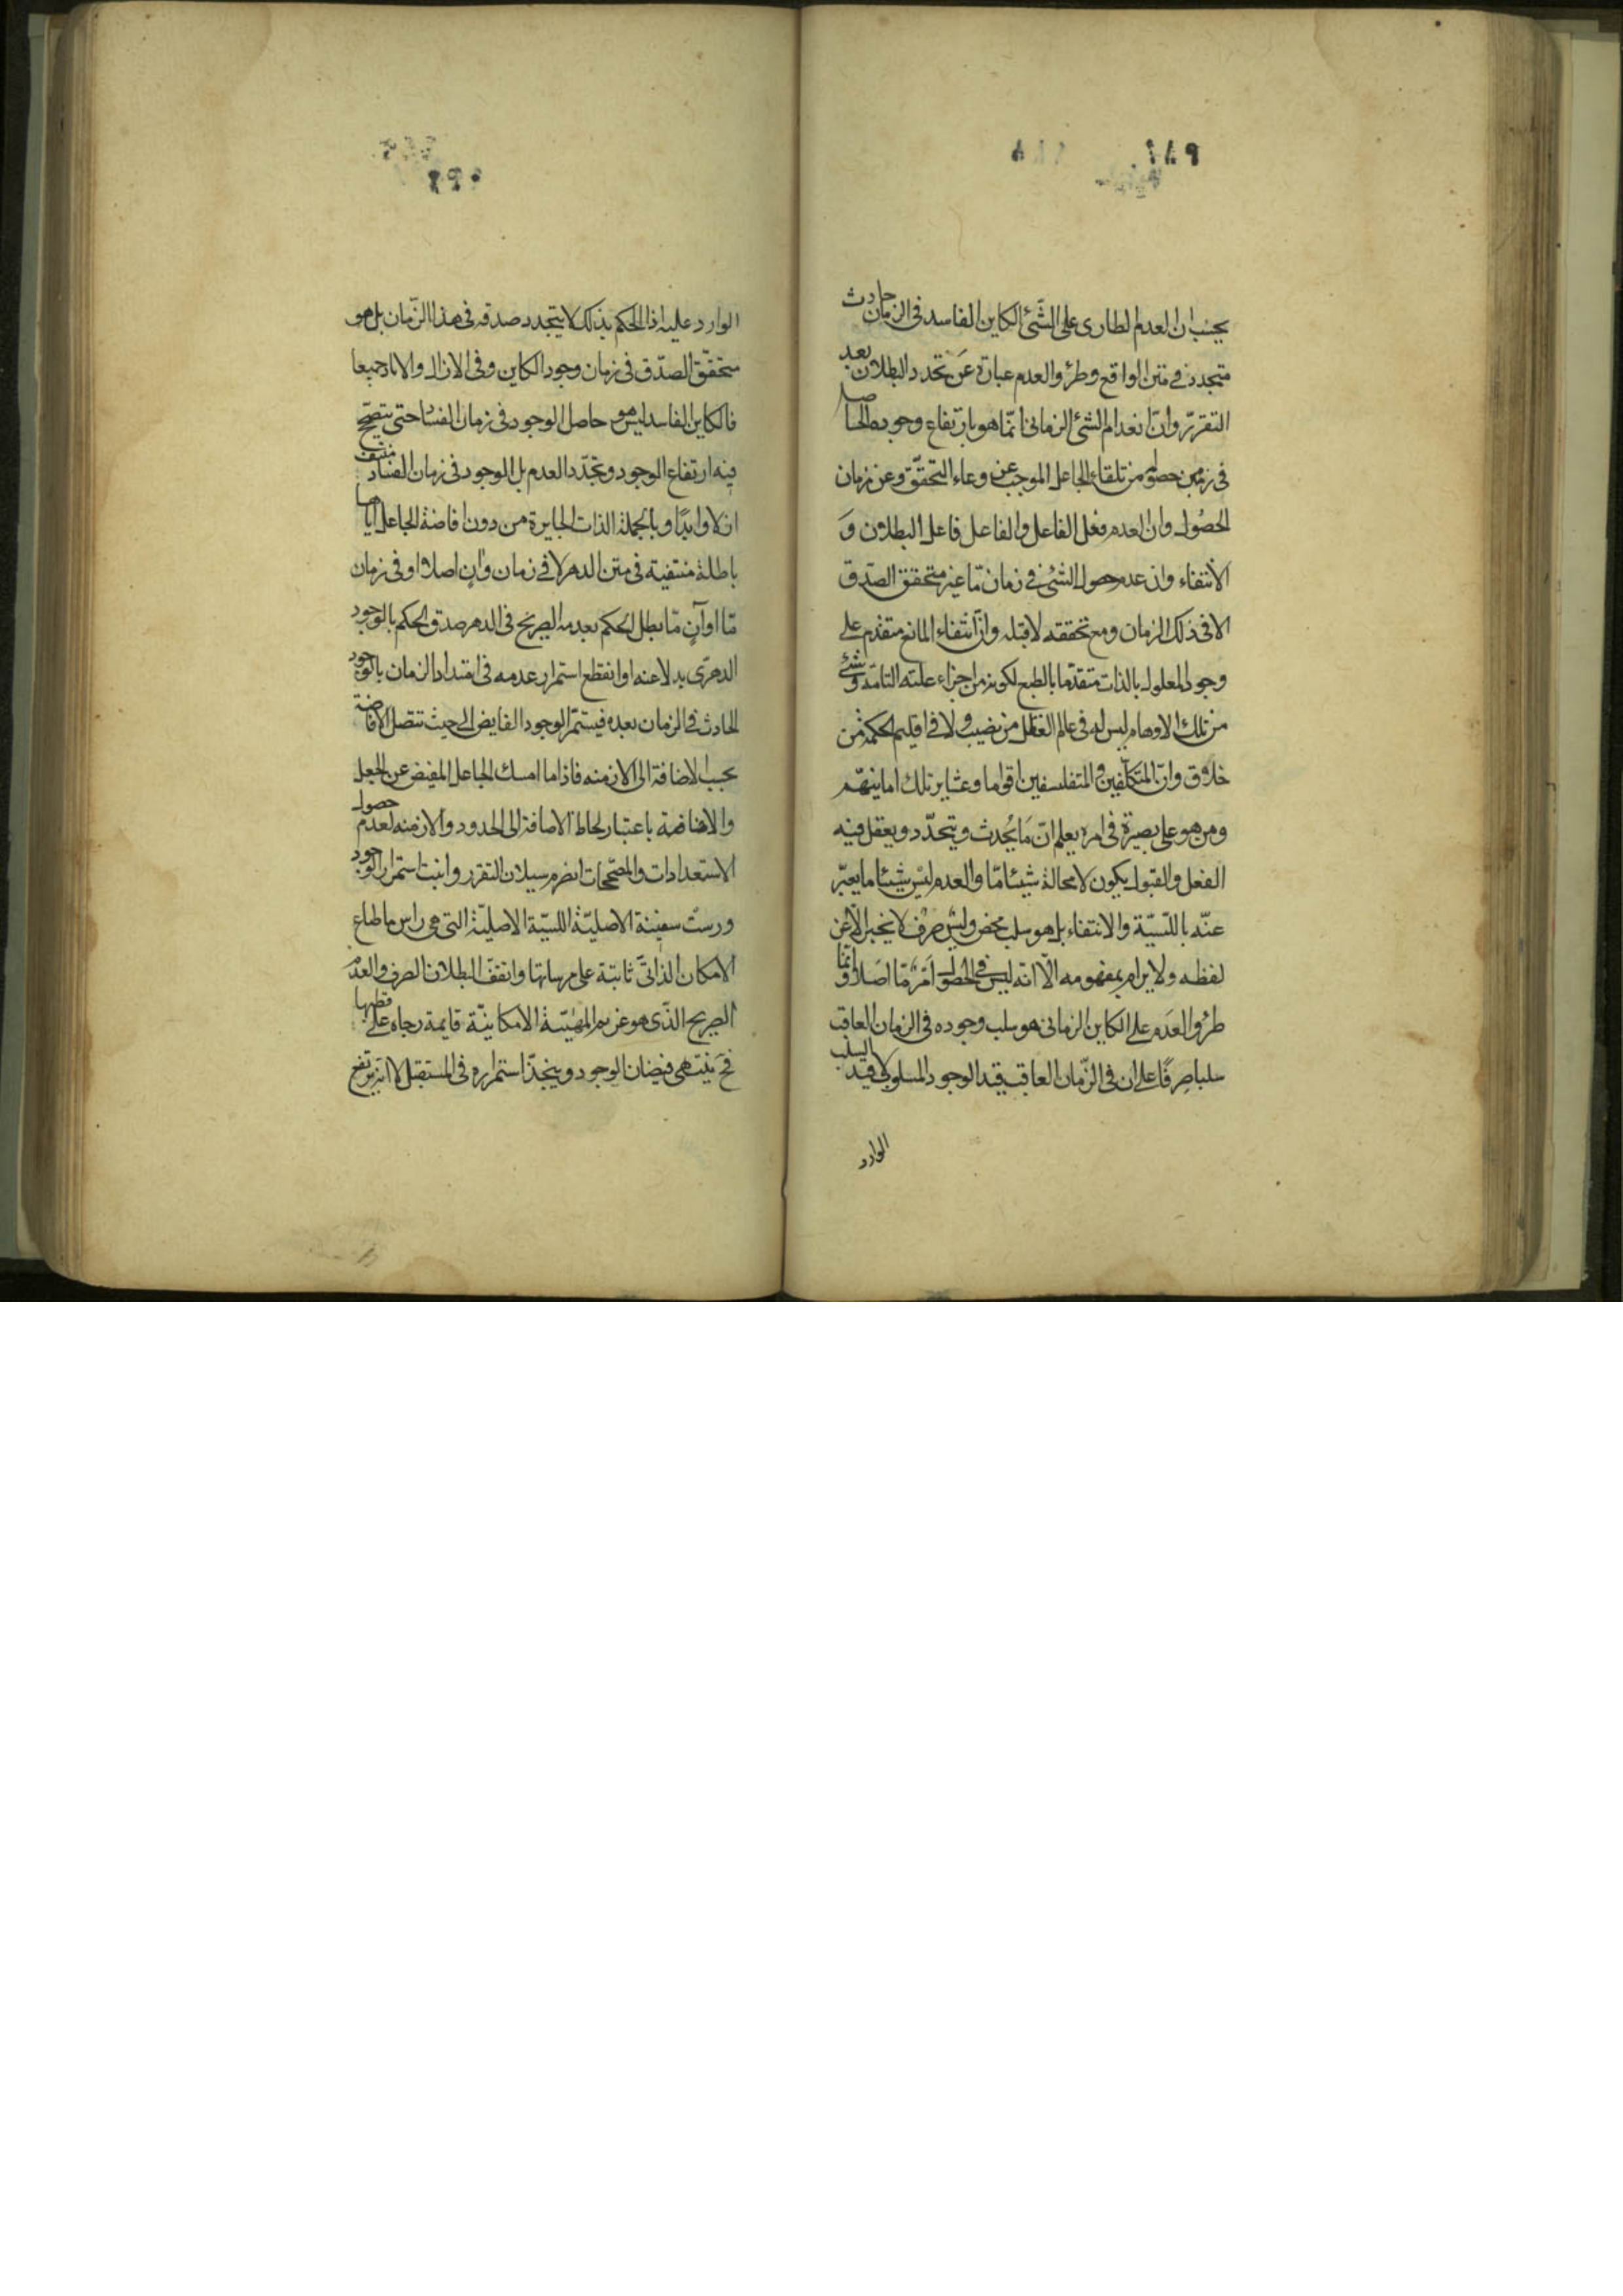 يحسب ان العدم الطارى على الشئ الكاين الفاسد فى الزمان حادث
متجدد فى متن الواقع وطرؤ العدم عبارة عن تجدد البطلان بعد
التقرّر وانّ انعدام الشئ الزمانى انّما هو بارتفاع وجوده الحاصل
فى زمن حصوله من تلقاء الجاعل الموجب عن وعاء التحقّق وعن زمان
الحصول وان العدم فعل الفاعل والفاعل فاعل البطلان و
الأنتفاء وان عدم حصول الشئ فى زمان مّا غير متحقق الصدق
الا فى ذلك الزمان ومع تحققه لا قبله وان انتفاء المانع متقدم على
وجود المعلول بالذات متقدّما بالطبع لكونه من اجزاء علته التامة وشئ
من تلك الاوهام ليس له فى عالم العقل من نصيب ولا فى اقليم الحكمة من
خلاق وانّ المتكلّفين والمتفلسفين اقواما وعشاير تلك امانيهم
ومن هو على بصيرة فى امره يعلم انّ ما يحدث ويتجدّد ويعقل فيه
الفعل والقبول يكون لا محالة شيئا مّا والعدم ليس شيئا ما يعبّر
عنه باللّيسيّة والانتفاء بل هو سلب محض وليس صرف لا يخبر الّا عن
لفظه ولا يرام بمفهومه الّا انه ليس فى الحصول امر مّا اصلا وانّما
طرؤ العدم على الكاين الزمانى هو سلب وجوده فى الزمان العاقب
سلبا صرفا على ان فى الزّمان العاقب قيد الوجود المسلوب لا قيد السلب
الوارد
الوارد عليه اذ الحكم بذلك لا يتجدد صدقه فى هذا الزّمان بل هو
متحقّق الصدق فى زمان وجود الكاين وفى الازال والاباد جميعا
فالكاين الفاسد ليس هو حاصل الوجود فى زمان الفساد حتى يتصحّح
فيه ارتفاع الوجود وتجدّد العدم بل الوجود فى زمان الفساد منتف
ازلا وابدًا وبالجملة الذات الجايزة من دون افاضة الجاعل اياها
باطلة منتفية فى متن الدهر لا فى زمان وان اصلا او فى زمان
مّا او آن مّا بطل الحكم بعدمه الصريح فى الدهر صدق الحكم بالوجود
الدهرى بدلا عنه او انقطع استمرار عدمه فى امتداد الزمان بالوجود
الحادث فى الزمان بعده فيستمرّ الوجود الفايض الى حيث تتصل الافاضة
بحسب الاضافة الى الازمنه فاذا ما امسك الجاعل المفيض عن الجعل
والافاضة باعتبار لحاظ الاضافة الى الحدود والازمنه لعدم حصول
الاستعدادات والمصحّحات انصرم سيلان التقرر وانبت استمرار الوجود
ورست سفينة الاصليّة الليسيّة الاصليّة التى هى راس ما طباع
الامكان الذاتىّ ثابتة على مرساتها وانقفّ البطلان الصرف والعدم
الصريح الذّى هو غريم المهيّة الامكانيّة قايمة رحاه على قطبها
فح ينتهى فيضان الوجود وينجذّ استمراره فى المستقبل لا انه يرتفع